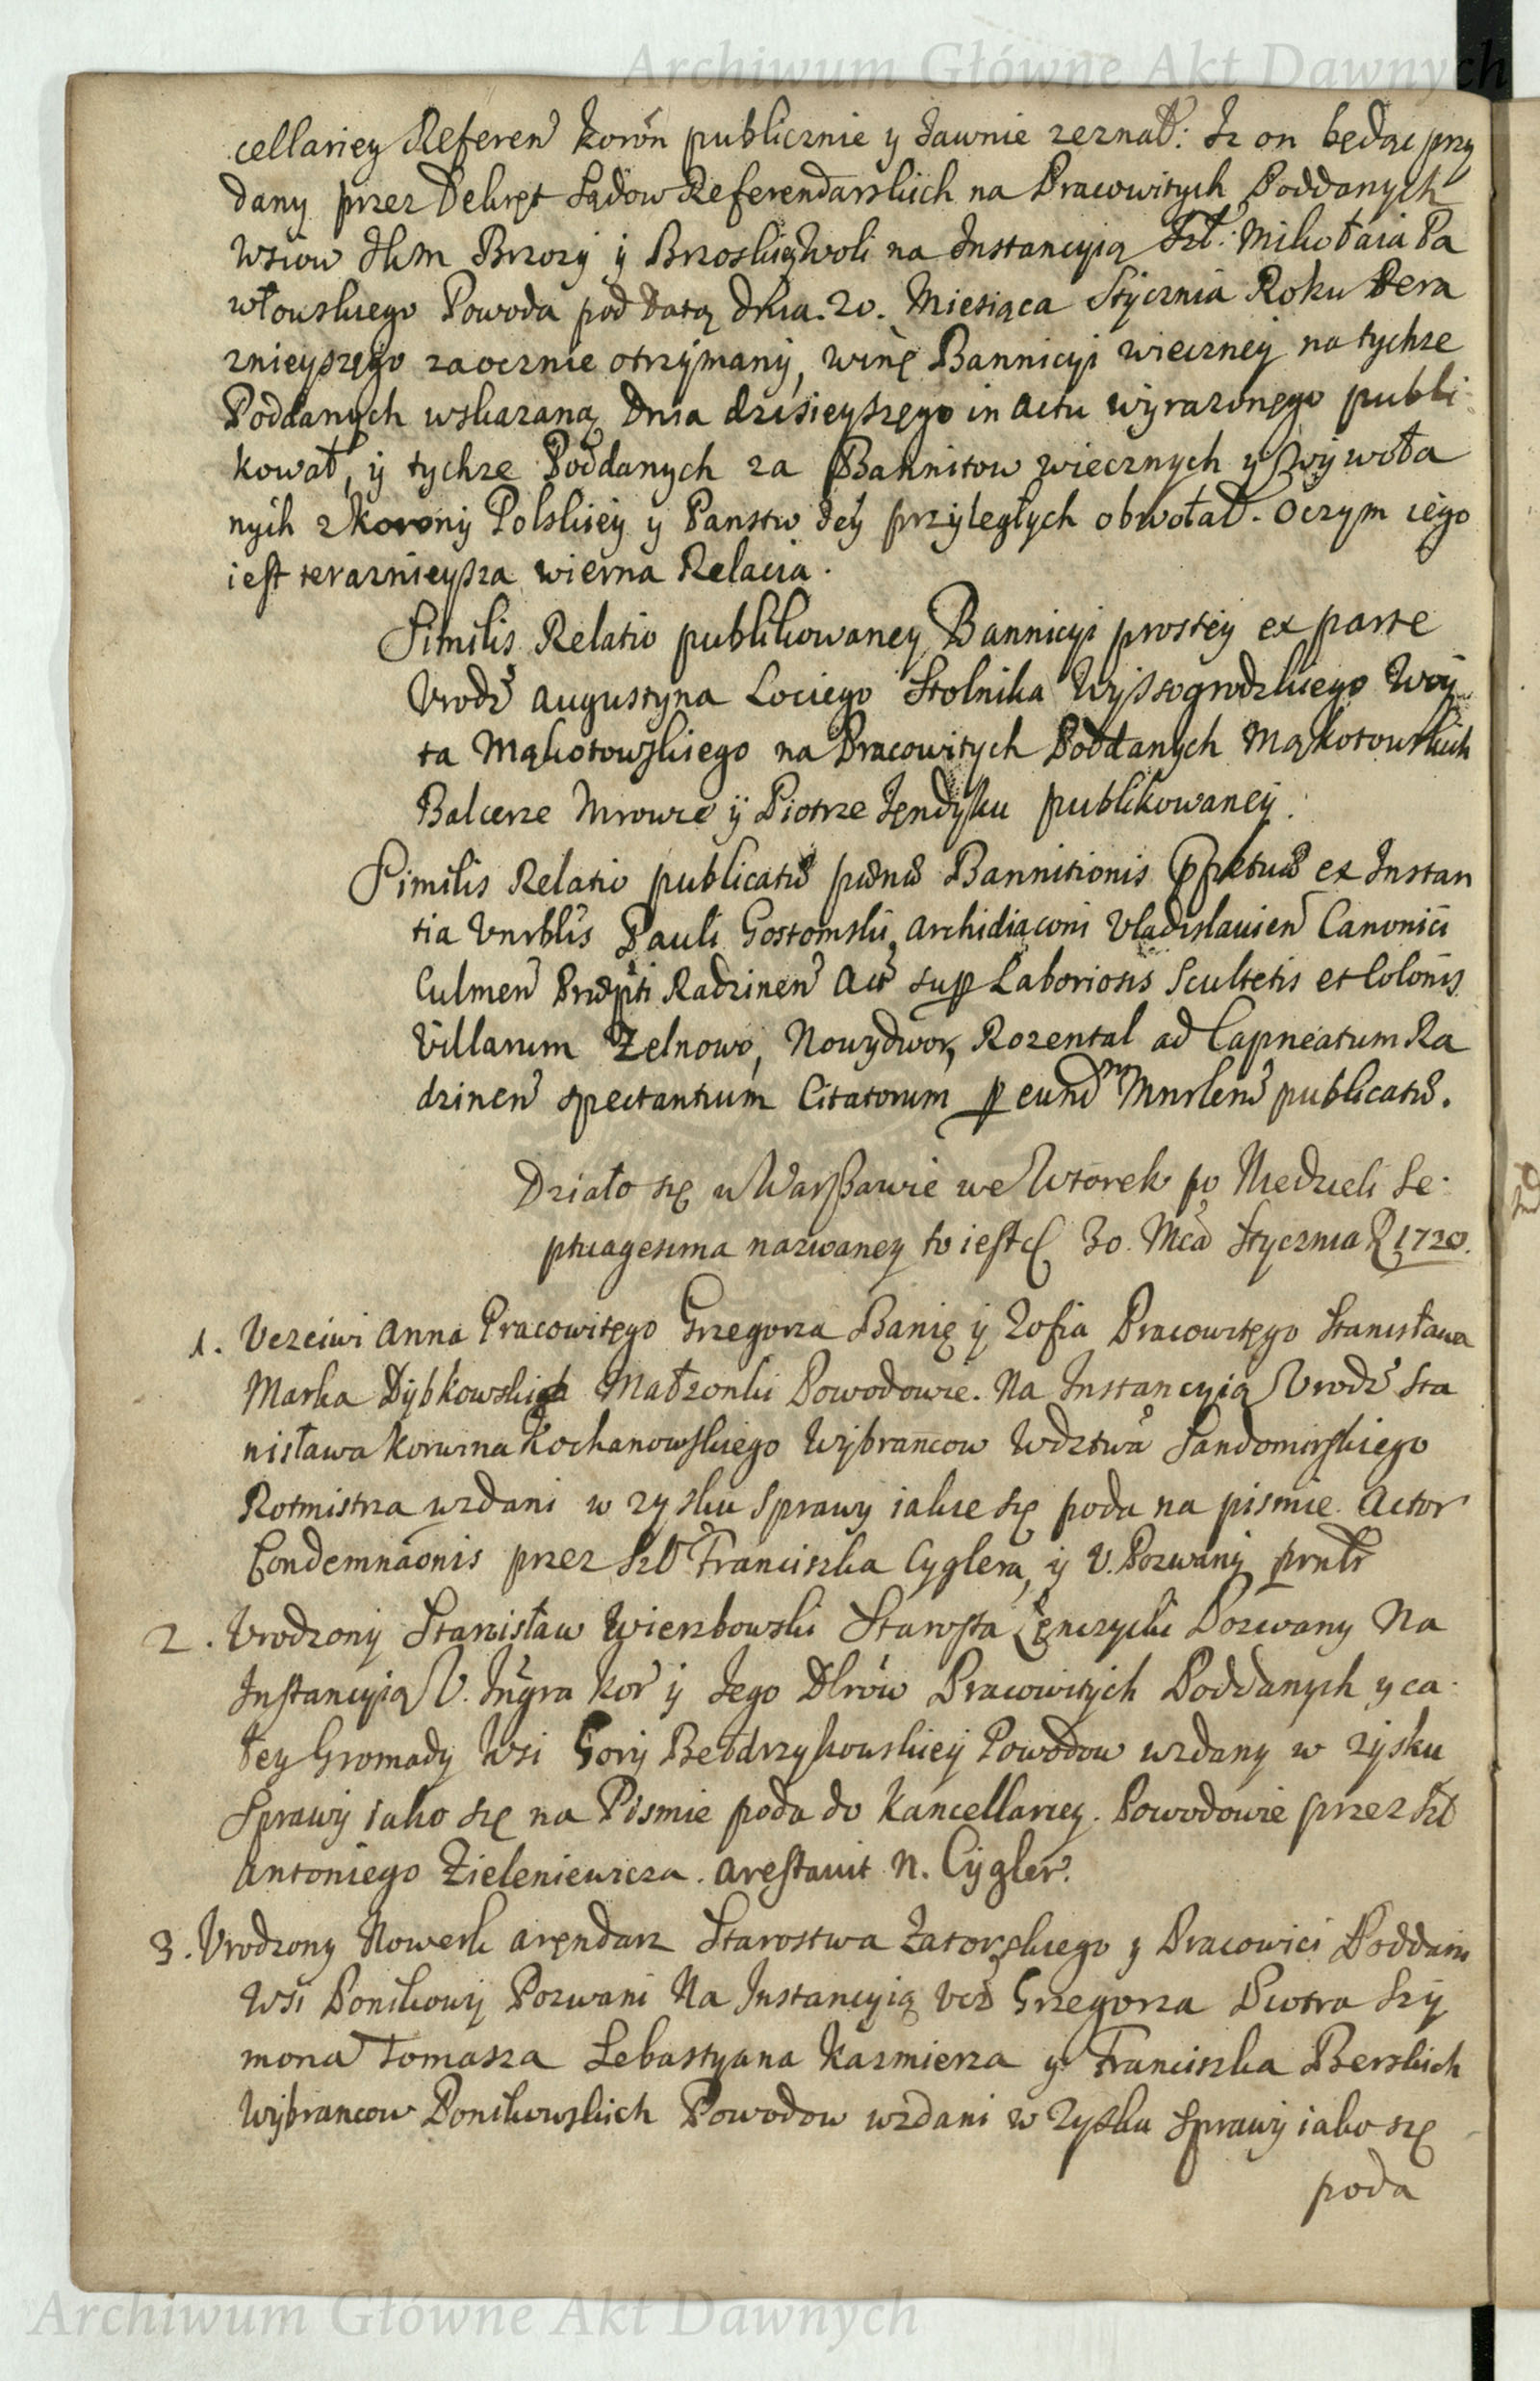 Archiwum Główne Akt Dawnych
cellariey Referen Koron publicznie y Jawnie zeznał: Iz on będąc przy
dany przez Dekręt Sądow Referendarskich na Pracowitych Poddanych
Wsiow JKM Brozy y Brzoskięy Woli na Instancyią Szł: Mikołaia Pa
włowskiego Powoda pod datą dnia. 20. Miesiąca Stycznia Roku Tera
znieyszęgo zaocznie otrzymany, winę Bannicyi wieczney na tychze
Poddanych wskazaną dnia dzisieyszęgo in actu wyrazonęgo publi
kował, y tychze Poddanych za Bannitow wiecznych y z wywoła
nych z Korony Polskiey y Panstw Jey przyległych obwołał. Oczym iego
iest teraznieysza wierna Relacia.
Similis Relatio publikowaney Bannicyi prostey ex parte
Vrodz Augustyna Lociego Stolnika Wyssogrodzkiego Woy
ta Mąkotowskiego na Pracowitych Poddanych Mąkotowskich
Balcerze Mrowce y Piotrze Jendyku publikowaney.
Similis Relatio publicatæ pænæ Bannitionis ppetuæ ex Instan
tia Vnrblis Pauli Gostomski, Archidiaconi Vladislavien Canonici
Culmen Præpti Radzinen Act sup Laboriosis Scultetis et Colonis
Villarum Zelnowo, Nowydwor, Rozental ad Capneatum Ra
dzinen spectantium Citatorum p eund m Mnrlem publicatæ.
Działo się w Warszawie we Wtorek po Niedzieli Se
ptuagesima nazwaney to iest d 30. Mca Stycznia R 1720.
1. Vczciwi Anna Pracowitęgo Grzegorza Banię y Zofia Pracowitęgo Stanisława
Marka Dybkowskich Małzonki Powodowie. Na Instancyią Vrodz Sta
nisława Korwina Kochanowskiego Wybrancow Wdztwa Sandomirskiego
Rotmistrza wzdani w zysku sprawy iakie się poda na pismie. Actor
Condemnaonis przez Szł Franciszka Cyglera, y V. Pozwany prnlr
2. Vrodzony Stanisław Wierzbowski Starosta Łęnczycki Pozwany Na
Instancyią V. Ingra Kor y Jego Dlrow Pracowitych Poddanych y ca
łey Gromady Wsi Gory Bełdrzykowskiey Powodow wzdany w zysku
Sprawy iako się na Pismie poda do Kancellariey. Powodowie przez Szł
Antoniego Zieleniewicza. Arestavit N. Cygler.
3. Vrodzony Nowerk Aręndarz Starostwa Zatorskiego y Pracowici Poddani
Wsi Ponikowy Pozwani Na Instancyią Vcz Grzegorza Piotra Szy
mona Tomasza Sebastyana Kazmierza y Franciszka Berskich
Wybrancow Ponikowskich Powodow wzdani w Zysku Sprawy iako się
poda
Archiwum Główne Akt Dawnych